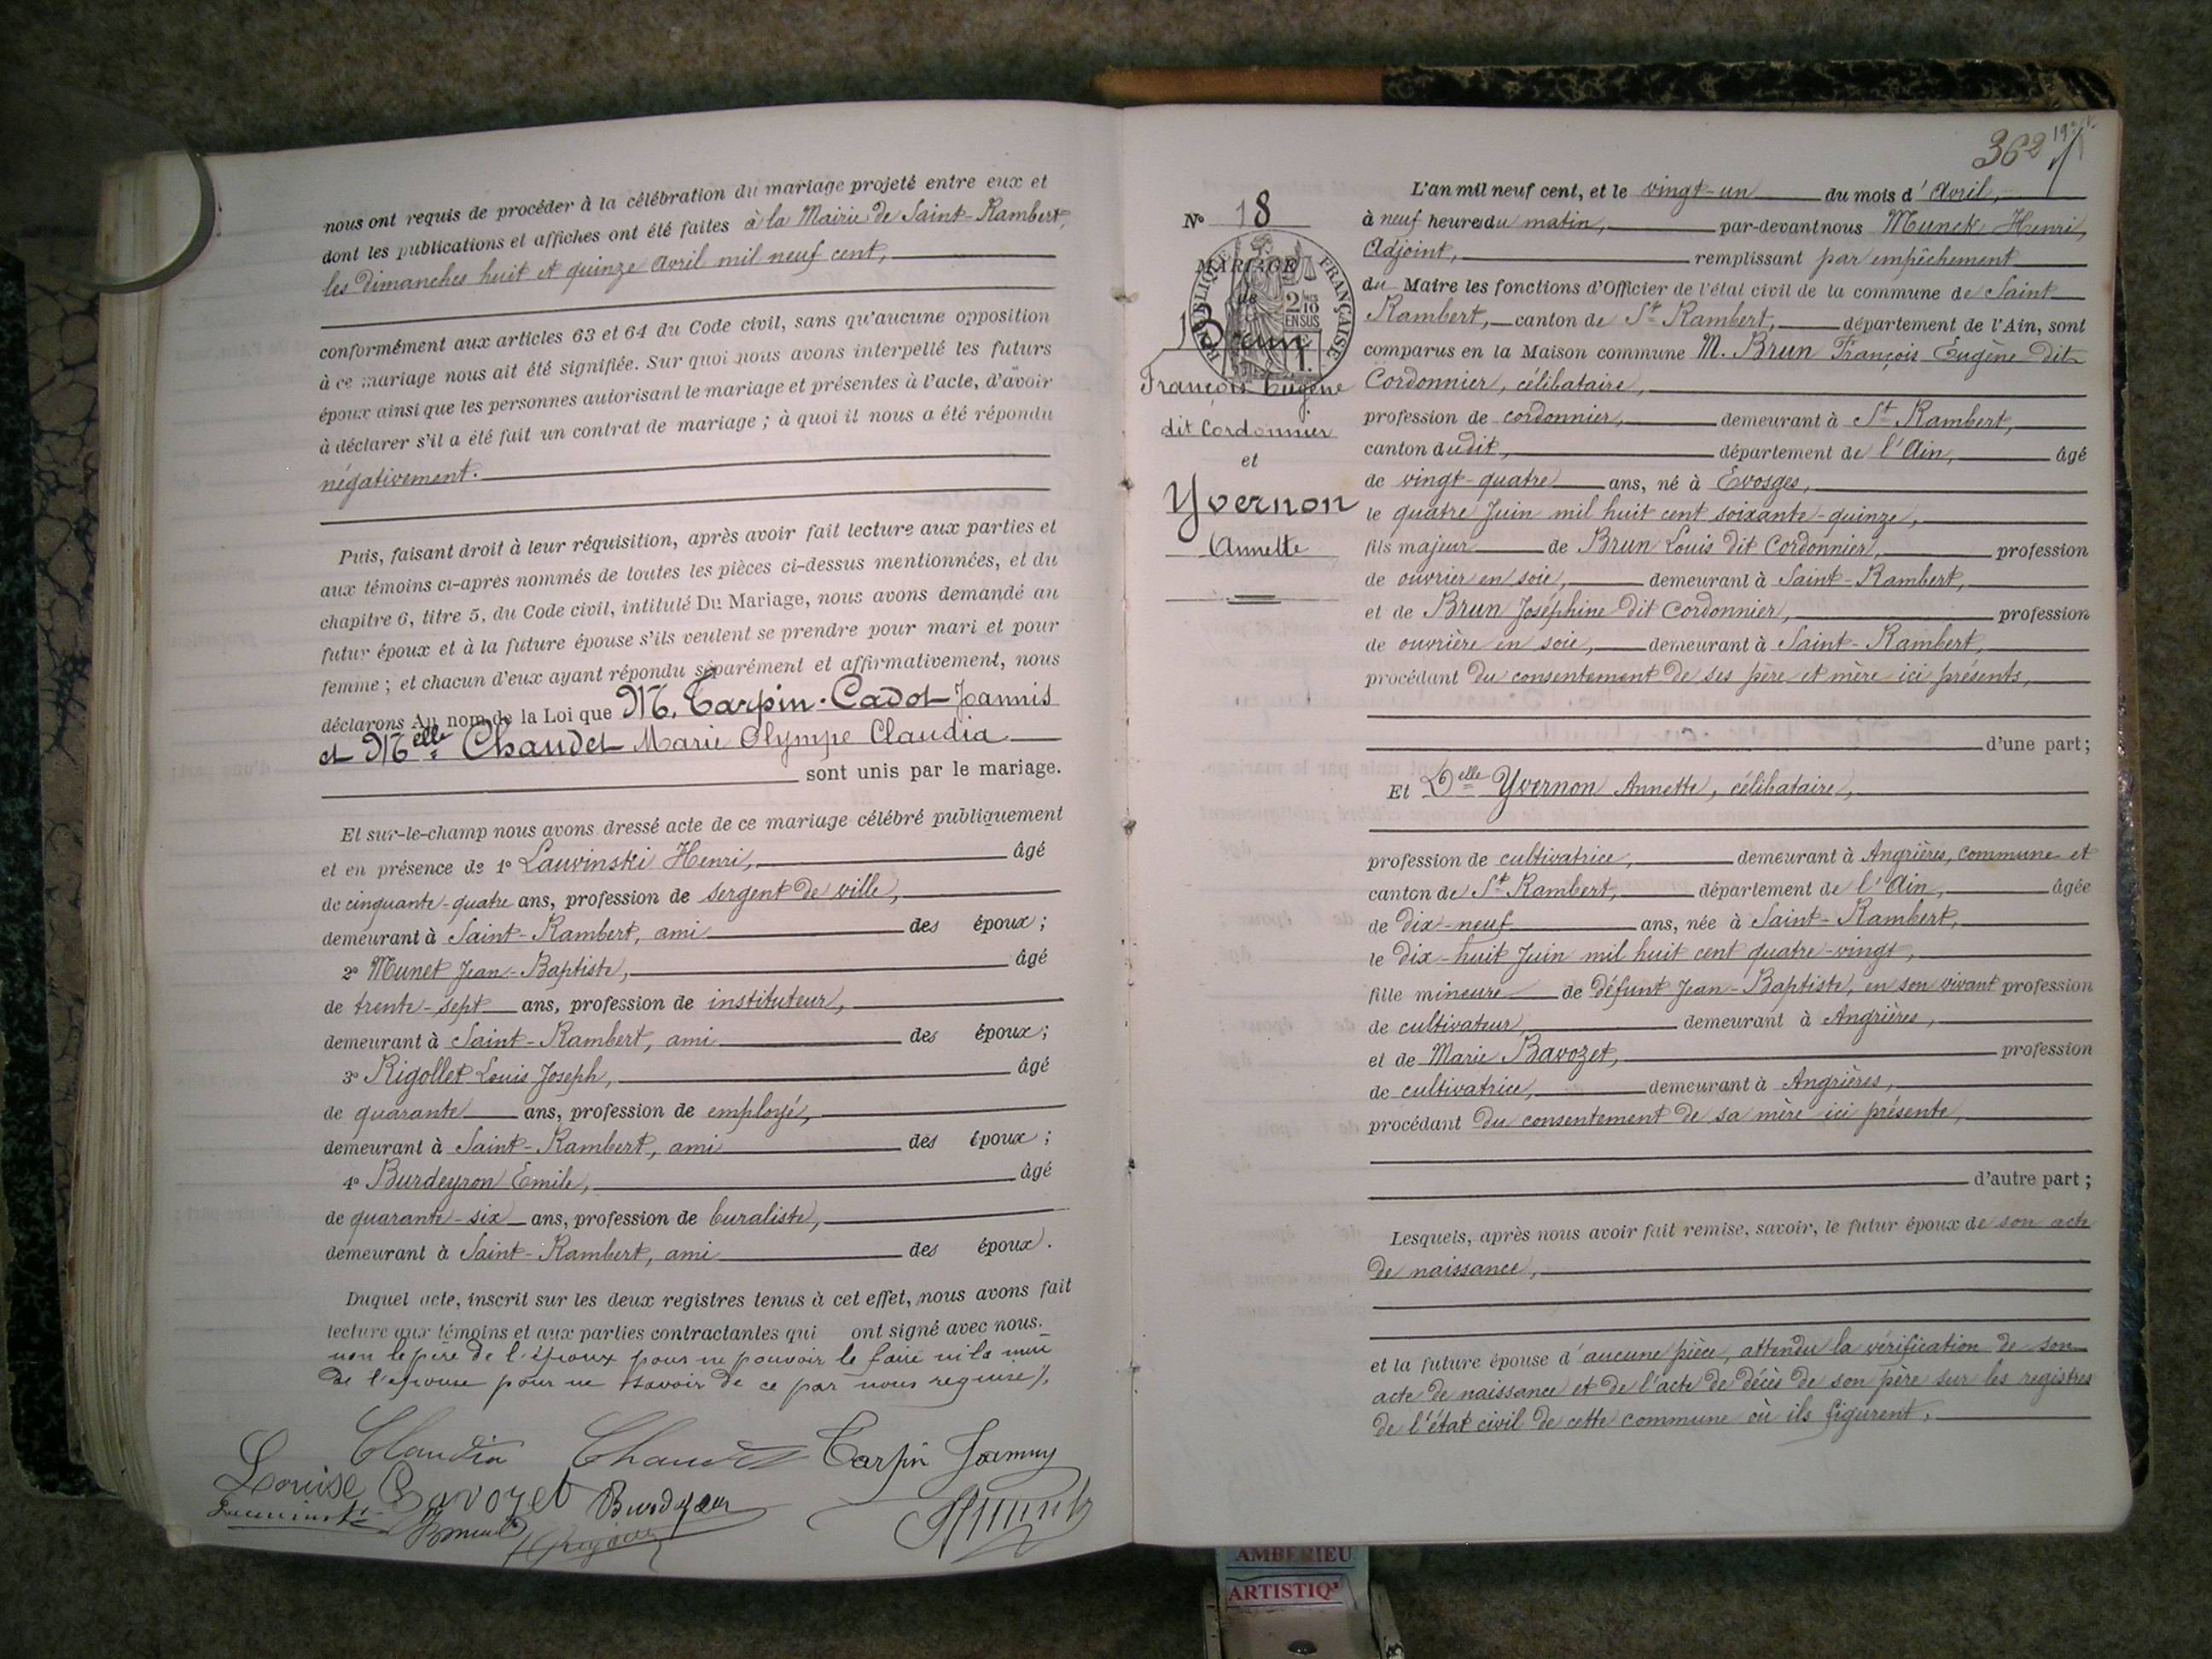 nous ont requis de procéder à la célébration du mariage projeté entre eux et
dont les publications et affiches ont été faites à la Mairie de Saint-Rambert,
les dimanches huit et quinze Avril mil neuf cent,
conformément aux articles 63 et 64 du Code civil, sans qu'aucune opposition
à ce mariage nous ait été signifiée. Sur quoi nous avons interpellé les futurs
époux ainsi que les personnes autorisant le mariage et présentes à l'acte, d'avoir
à déclarer s'il a été fait un contrat de mariage ; à quoi il nous a été répondu
négativement.
Puis, faisant droit à leur réquisition, après avoir fait lecture aux parties et
aux témoins ci-après nommés de toutes les pièces ci-dessus mentionnées, et du
chapitre 6, titre 5, du Code civil, intitulé Du Mariage, nous avons demandé au
futur époux et à la future épouse s'ils veulent se prendre pour mari et pour
femme ; et chacun d'eux ayant répondu séparément et affirmativement, nous
déclarons Au nom de la Loi que M. Tarpin-Cadot Joannis
et Melle Chaudet Marie Olympe Claudia
sont unis par le mariage.
Et sur-le-champ nous avons dressé acte de ce mariage célébré publiquement
et en présence de 1° Lauvinski Henri, âgé
de cinquante-quatre ans, profession de sergent de ville,
demeurant à Saint-Rambert, ami des époux ;
2° Munet Jean-Baptiste, âgé
de trente-sept ans, profession de instituteur,
demeurant à Saint-Rambert, ami des époux ;
3° Rigollet Louis Joseph, âgé
de quarante ans, profession de employé,
demeurant à Saint-Rambert, ami des époux ;
4° Burdeyron Emile, âgé
de quarante-six ans, profession de buraliste,
demeurant à Saint-Rambert, ami des époux.
Duquel acte, inscrit sur les deux registres tenus à cet effet, nous avons fait
lecture aux témoins et aux parties contractantes qui ont signé avec nous.
non le père de l'époux pour ne pouvoir le faire ni la mère
de l'épouse pour ne savoir de ce par nous requise,
Claudia Chaudet Tarpin Joanny
Louise Bavozet Burdeyron
362
N° 18
MARIAGE
de
RÉPUBLIQUE FRANÇAISE
2/10
EN SUS
Brun
François Eugène
dit Cordonnier
et
Yvernon
Annette
L'an mil neuf cent, et le vingt-un du mois d'Avril,
à neuf heures du matin, par-devant nous Munck Henri,
Adjoint, remplissant par empêchement
du Maire les fonctions d'Officier de l'état civil de la commune de Saint
Rambert, canton de St Rambert, département de l'Ain, sont
comparus en la Maison commune M. Brun François Eugène dit
Cordonnier, célibataire,
profession de cordonnier, demeurant à St Rambert,
canton dudit, département de l'Ain, âgé
de vingt-quatre ans, né à Evosges,
le quatre Juin mil huit cent soixante-quinze,
fils majeur de Brun Louis dit Cordonnier, profession
de ouvrier en soie, demeurant à Saint-Rambert,
et de Brun Joséphine dit Cordonnier, profession
de ouvrière en soie, demeurant à Saint-Rambert,
procédant du consentement de ses père et mère ici présents,
d'une part ;
Et Delle Yvernon Annette, célibataire,
profession de cultivatrice, demeurant à Angrières, commune et
canton de St Rambert, département de l'Ain, âgée
de dix-neuf ans, née à Saint-Rambert,
le dix-huit Juin mil huit cent quatre-vingt,
fille mineure de défunt Jean-Baptiste, en son vivant profession
de cultivateur, demeurant à Angrières,
et de Marie Bavozet, profession
de cultivatrice, demeurant à Angrières,
procédant du consentement de sa mère ici présente,
d'autre part ;
Lesquels, après nous avoir fait remise, savoir, le futur époux de son acte
de naissance,
et la future épouse d'aucune pièce, attendu la vérification de son
acte de naissance et de l'acte de décès de son père sur les registres
de l'état civil de cette commune où ils figurent,
AMBERIEU
ARTISTIQ'